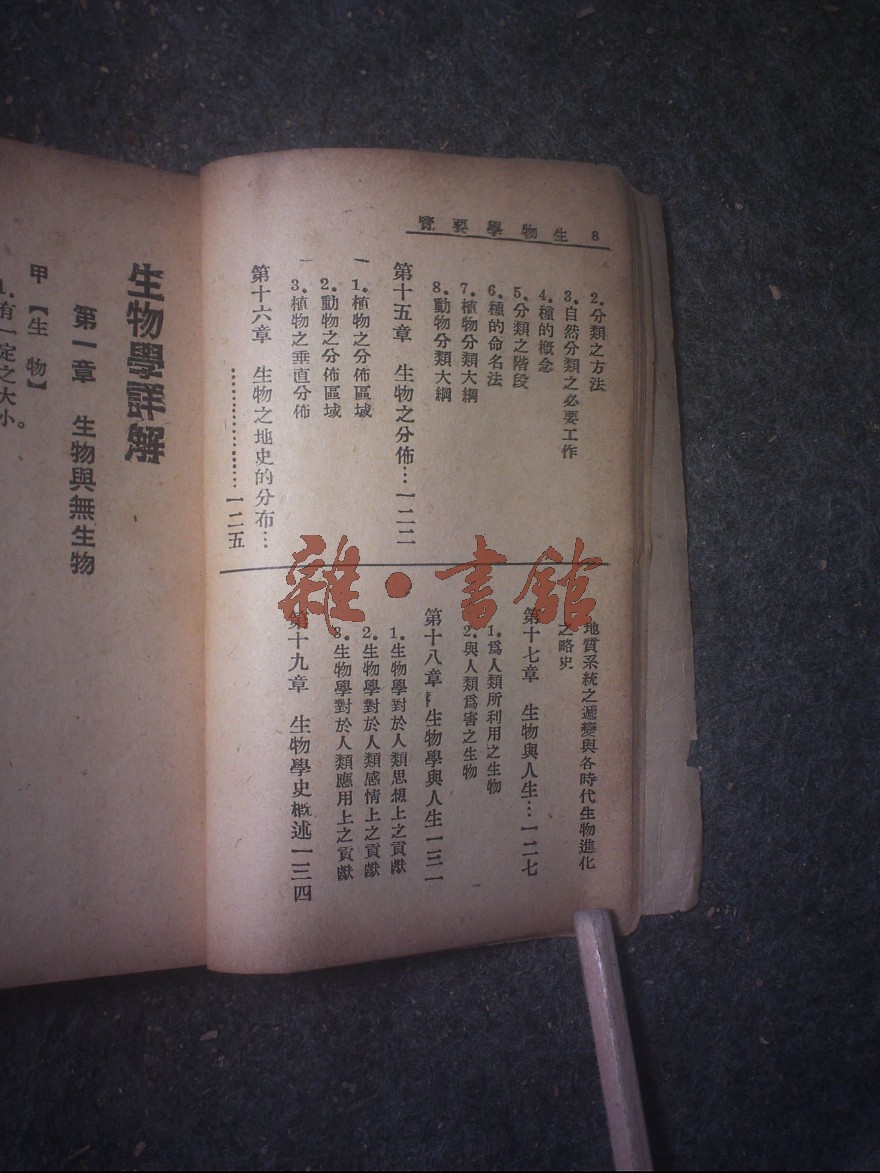 8 生物學要覽
2.分類之方法
3.自然分類之必要工作
4.種的概念
5.分類之階段
6.種的命名法
7.植物分類大綱
8.動物分類大綱
第十五章 生物之分佈…一二二
1.植物之分佈區域
2.動物之分佈區域
3.植物之垂直分佈
第十六章 生物之地史的分布…
………………一二五
地質系統之遞變與各時代生物進化
之略史
第十七章 生物與人生…一二七
1.爲人類所利用之生物
2.與人類爲害之生物
第十八章 生物學與人生一三一
1.生物學對於人類思想上之貢獻
2.生物學對於人類感情上之貢獻
3.生物學對於人類應用上之貢獻
第十九章 生物學史概述一三四
雜·書館
生物學詳解
第一章 生物與無生物
甲【生物】
1.有一定之大小。